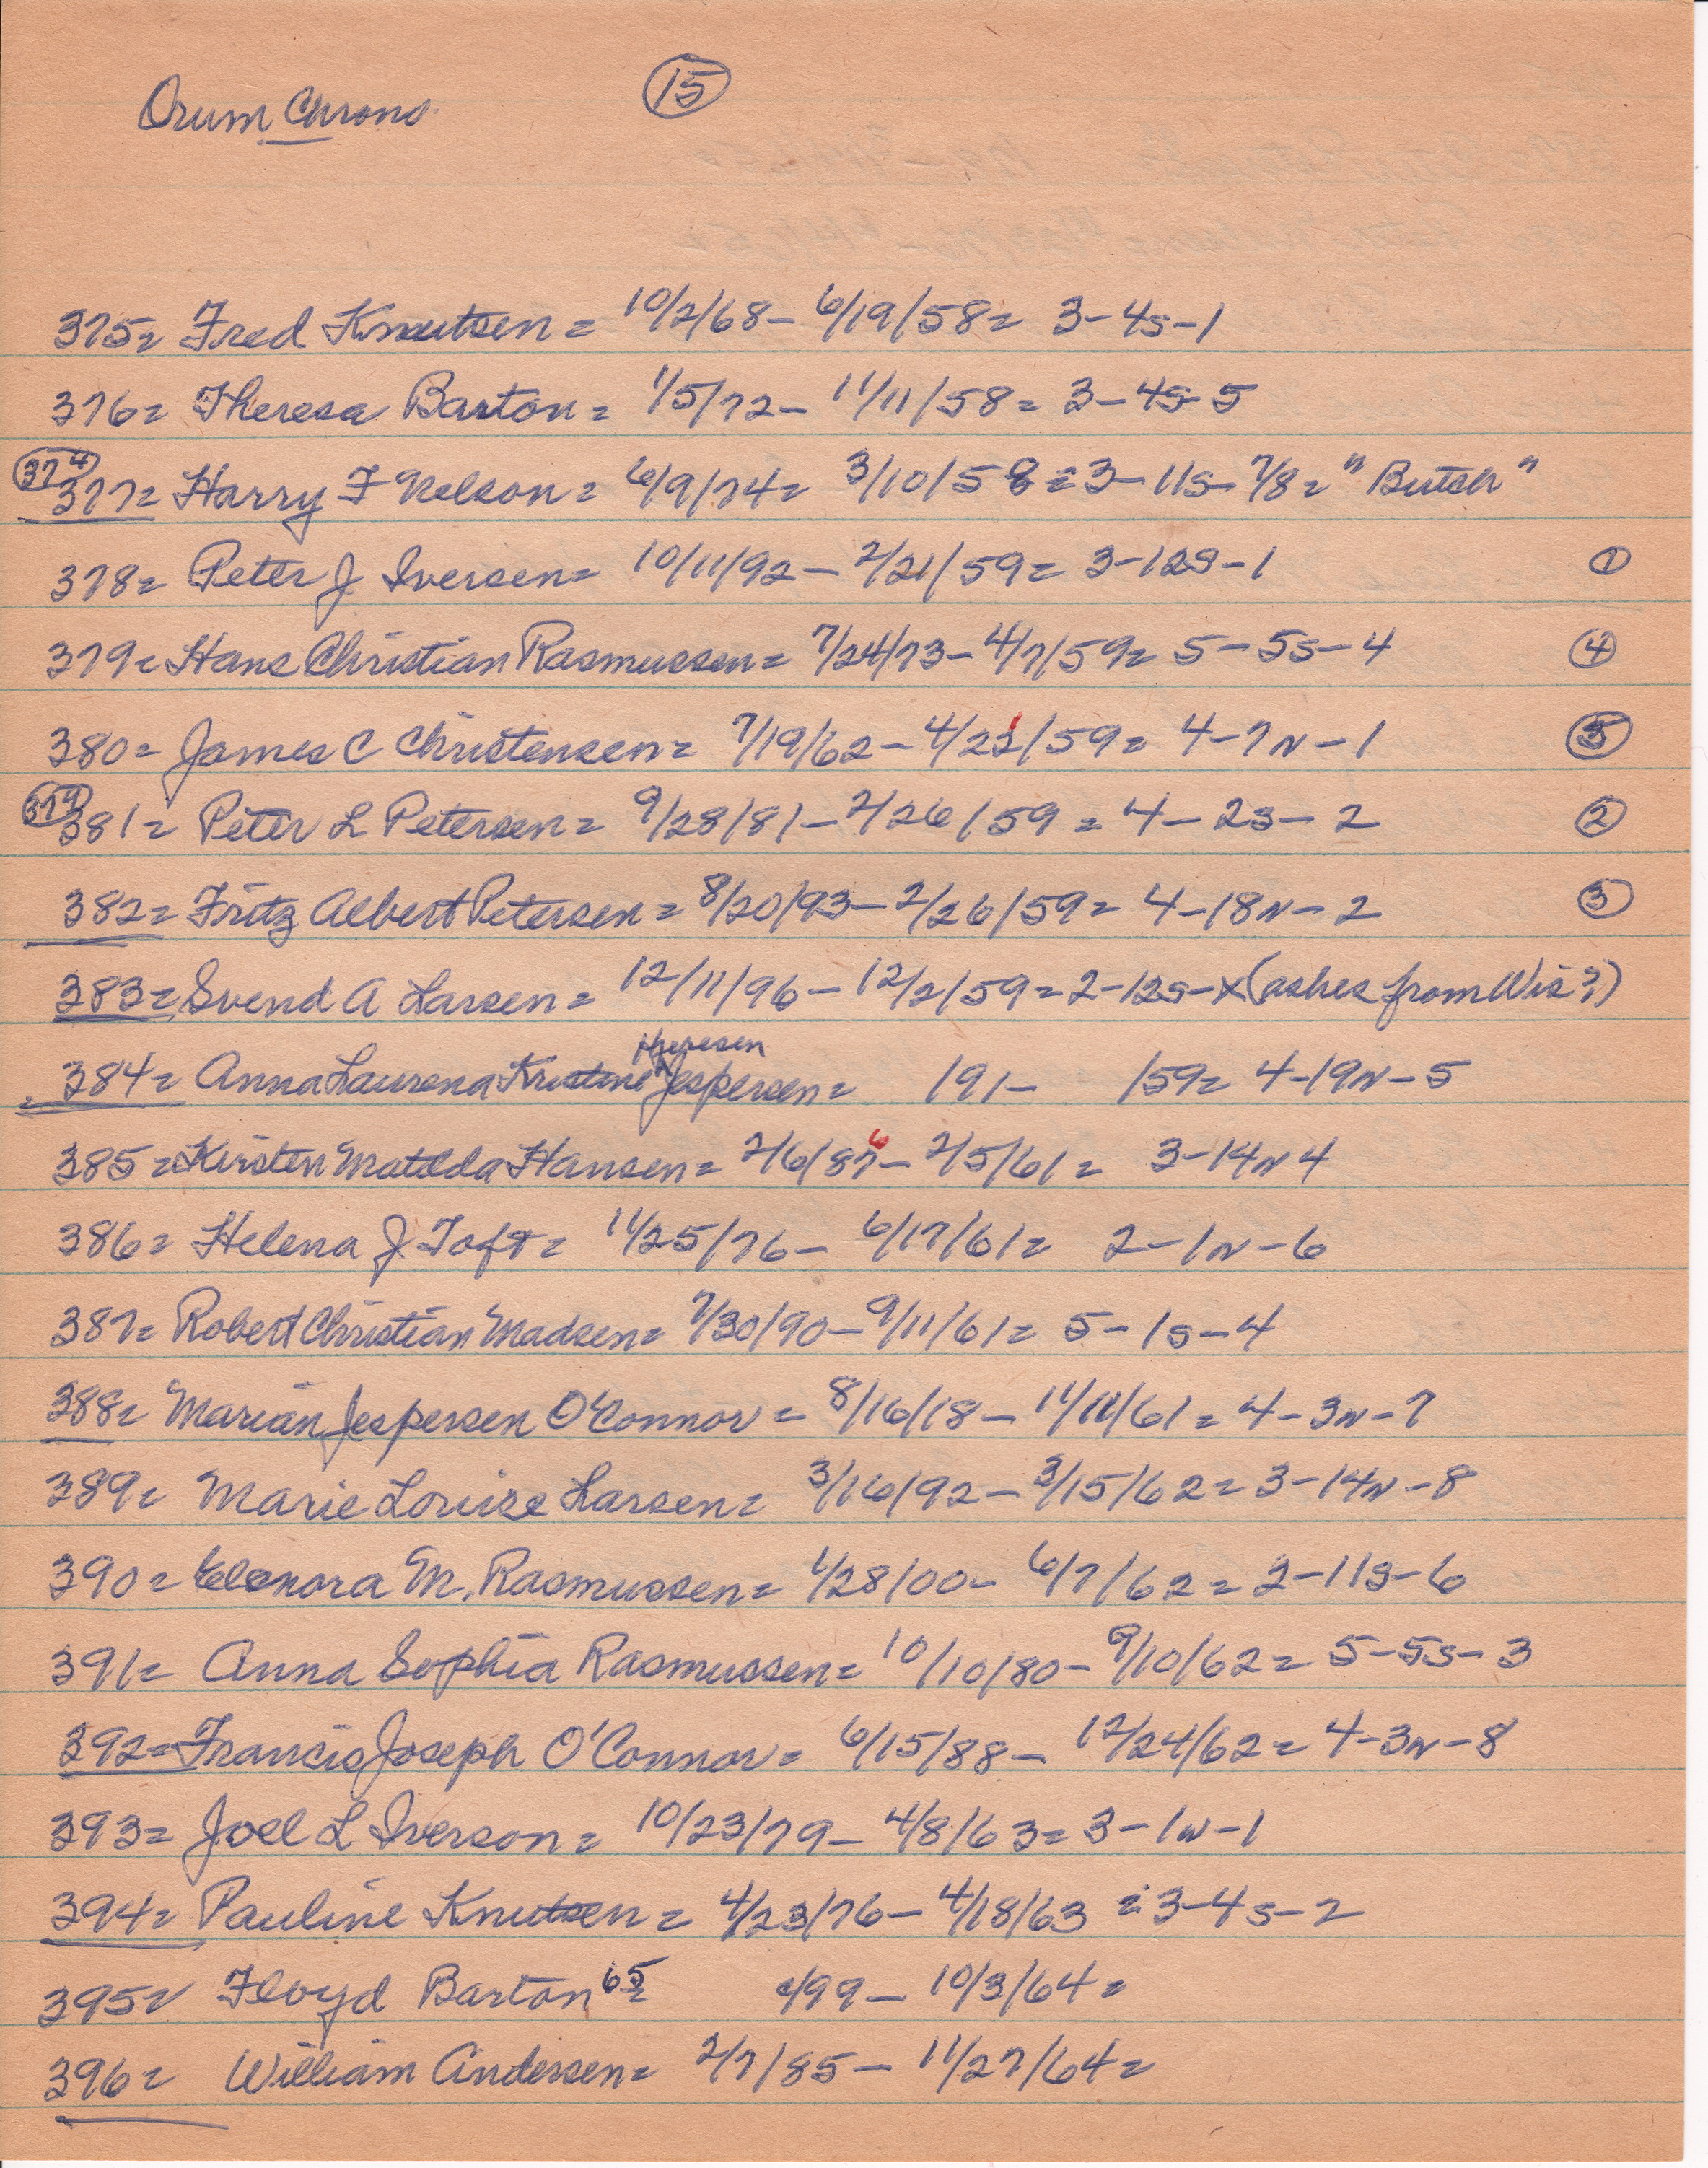 Orum Chrono. (15)
375= Fred Knutsen = 10/2/68 - 6/19/58 = 3-4s-1
376= Theresa Barton = 1/5/72 - 11/11/58 = 3-4s-5
(374) 377= Harry F Nelson = 6/9/74 = 3/10/58 = 3-11s-7/8 = "Butch"
378= Peter J Iversen = 10/11/92 - 2/21/59 = 3-12s-1 (1)
379= Hans Christian Rasmussen = 7/24/73 - 4/7/59 = 5-5s-4 (4)
380= James C Christensen = 7/19/62 - 4/21/59 = 4-7N-1 (5)
(379) 381= Peter L Petersen = 9/28/81 - 2/26/59 = 4-2s-2 (2)
382= Fritz Albert Petersen = 8/20/93 - 2/26/59 = 4-18N-2 (3)
383= Svend A Larsen = 12/11/96 - 12/2/59 = 2-12s-X (ashes from Wis?)
Theresen
384= Anna Laurena Kristine Jespersen = 191- /59= 4-19N-5
6
385= Kirsten Matilda Hansen = 2/6/87 - 2/5/61 = 3-14N 4
386= Helena J. Toft = 11/25/76 - 6/17/61 = 2-1N-6
387= Robert Christian Madsen = 7/30/90 - 9/11/61 = 5-1s-4
388= Marian Jespersen O'Connor = 8/16/18 - 11/11/61 = 4-3N-7
389= Marie Louise Larsen = 3/16/92 - 3/15/62 = 3-14N-8
390= Elenora M. Rasmussen = 1/28/00 - 6/7/62 = 2-11s-6
391= Anna Sophia Rasmussen = 10/10/80 - 9/10/62 = 5-5s-3
392= Francis Joseph O'Connor = 6/15/88 - 12/24/62 = 4-3N-8
393= Joel L Iverson = 10/23/79 - 4/8/63 = 3-1N-1
394= Pauline Knutsen = 4/23/76 - 4/18/63 = 3-4s-2
395= Floyd Barton 65 /99 - 10/3/64 =
396= William Andersen = 2/7/85 - 11/27/64 =